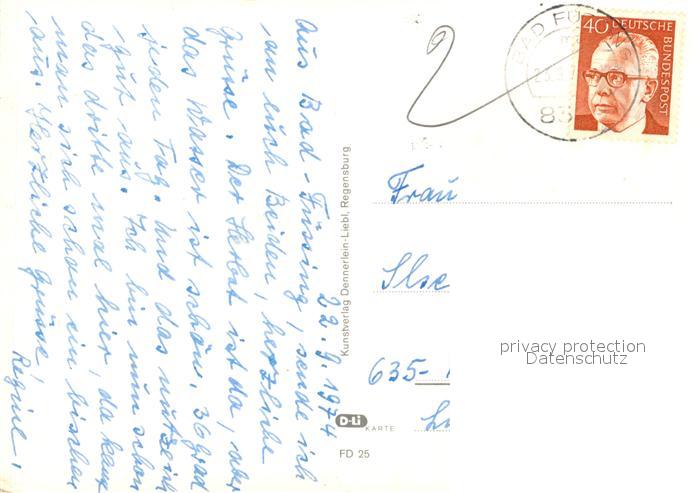 22.9.1974
Aus Bad-Füssing, sende ich
an euch Beiden, herzliche
Grüße. Der Herbst ist da, aber
das Wasser ist schön. 36 grad
jeden Tag. Und das nützen
gut aus. Ich bin nun schon
das dritte mal hier, da kennt
man sich schon ein bischen
aus. Herzliche Grüsse!
Regine.
Kunstverlag Dennerlein-Liebl, Regensburg
D-Li
KARTE
FD 25
BAD FÜ
83
40 DEUTSCHE
BUNDESPOST
Frau
Ilse
635-
privacy protection
Datenschutz